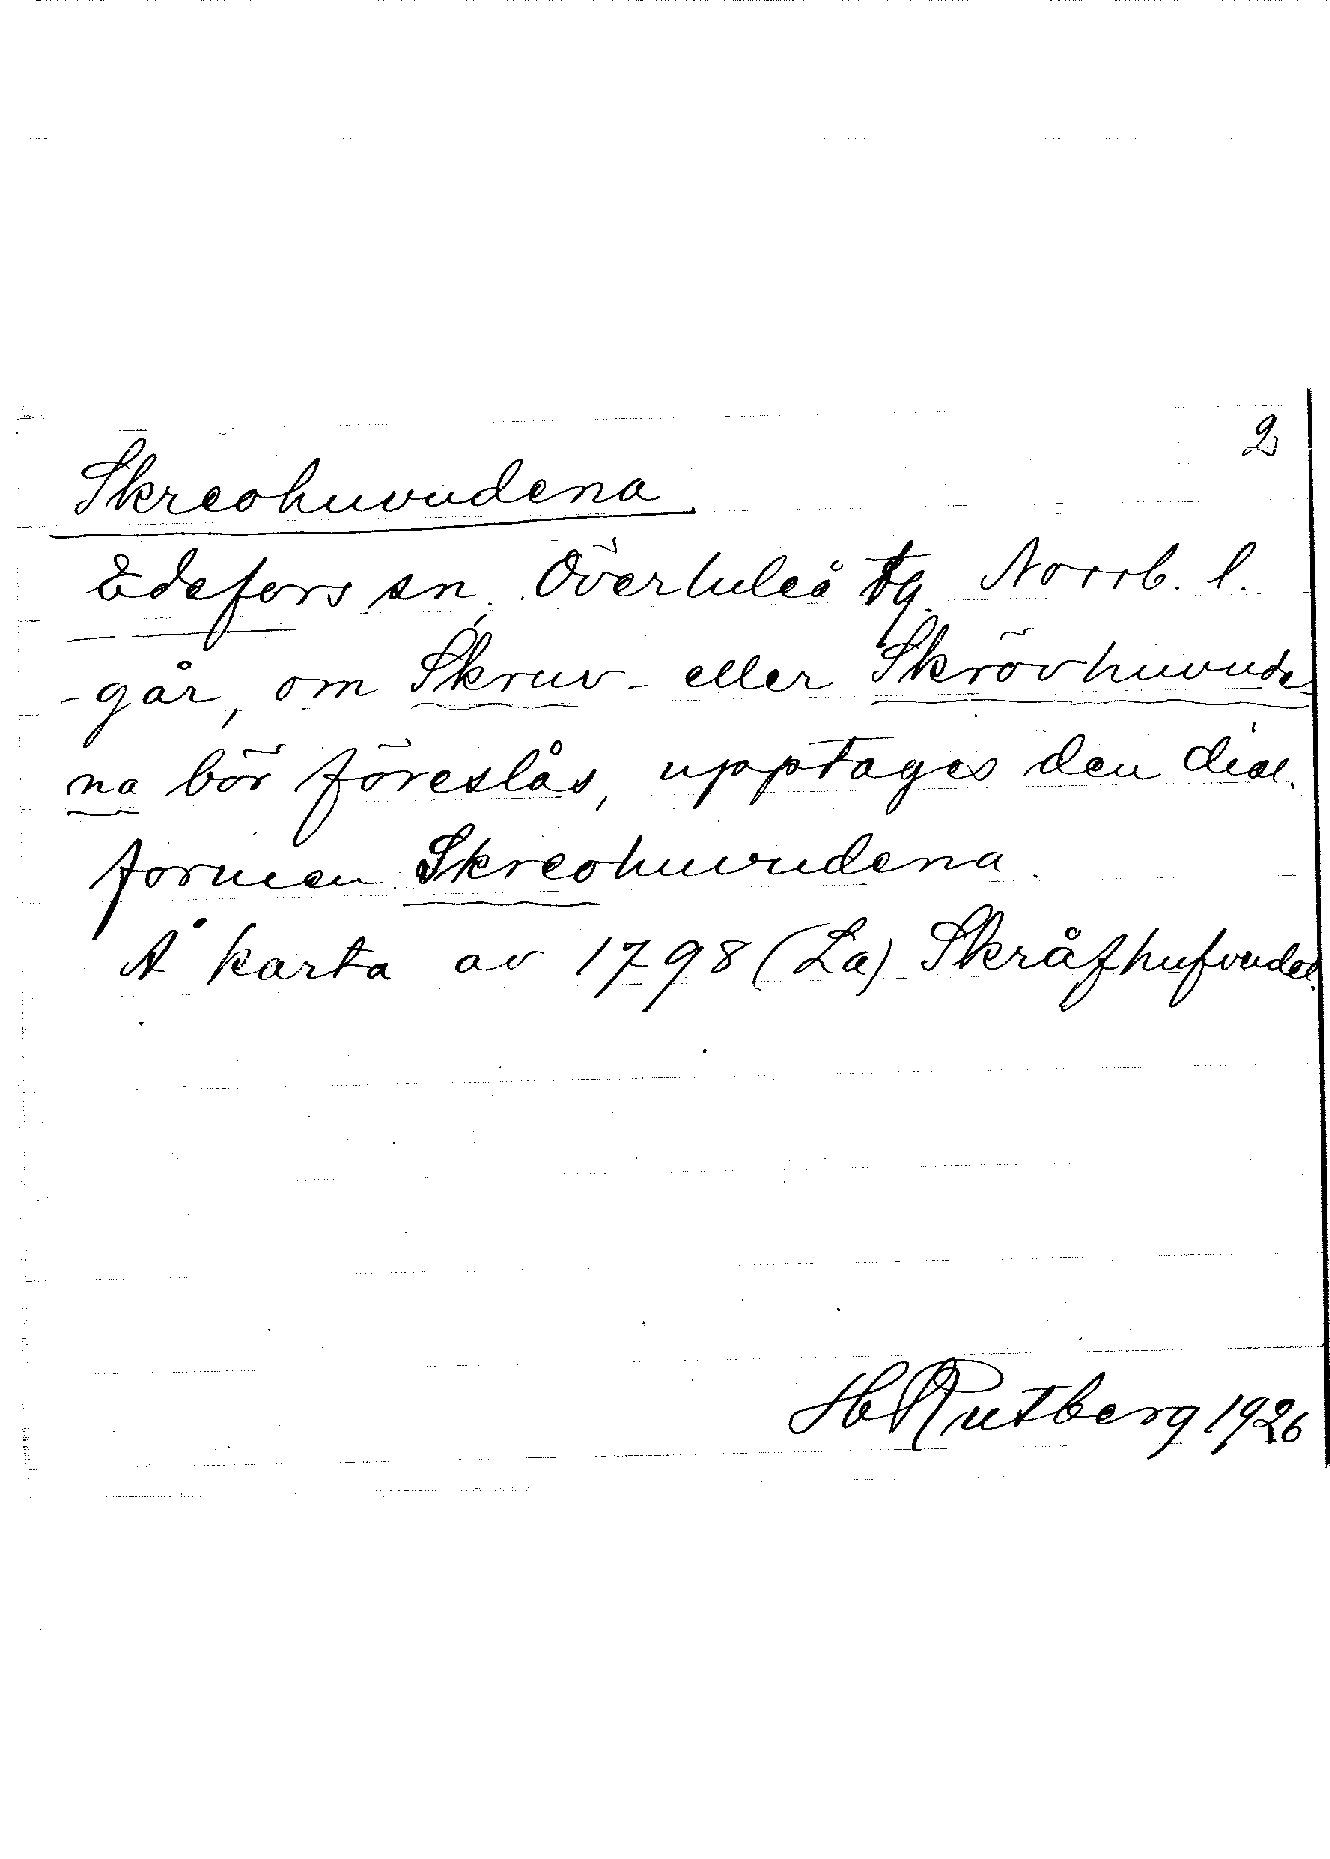 2
Skreohuvudena
Edefors sn, Överluleå tg. Norrb. l.
-går, om Skruv- eller Skrövhuvude-
na bör föreslås, upptages den dial.
formen Skreohuvudena.
Å karta av 1798 (La) Skråfhufvudet.
H Rutberg 1926